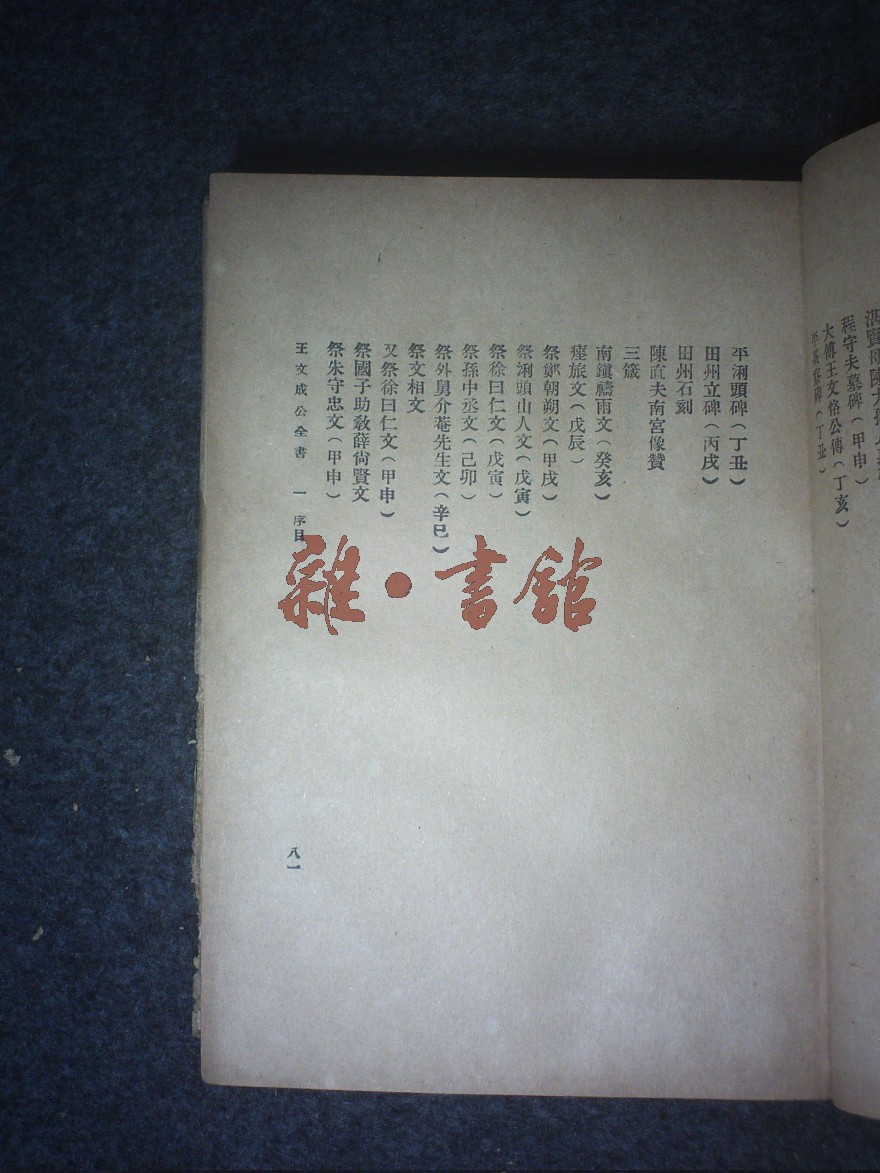 程守夫墓碑(甲申)
大傅王文恪公傳(丁亥)
平茶寮碑(丁丑)
平浰頭碑(丁丑)
田州立碑(丙戌)
田州石刻
陳直夫南宮像贊
三箴
南鎭禱雨文(癸亥)
瘞旅文(戊辰)
祭鄭朝朔文(甲戌)
祭浰頭山人文(戊寅)
祭徐曰仁文(戊寅)
祭孫中丞文(己卯)
祭外舅介菴先生文(辛巳)
祭文相文
又祭徐曰仁文(甲申)
祭國子助敎薛尙賢文
祭朱守忠文(甲申)
王文成公全書 一 序目
八一
雜·書館